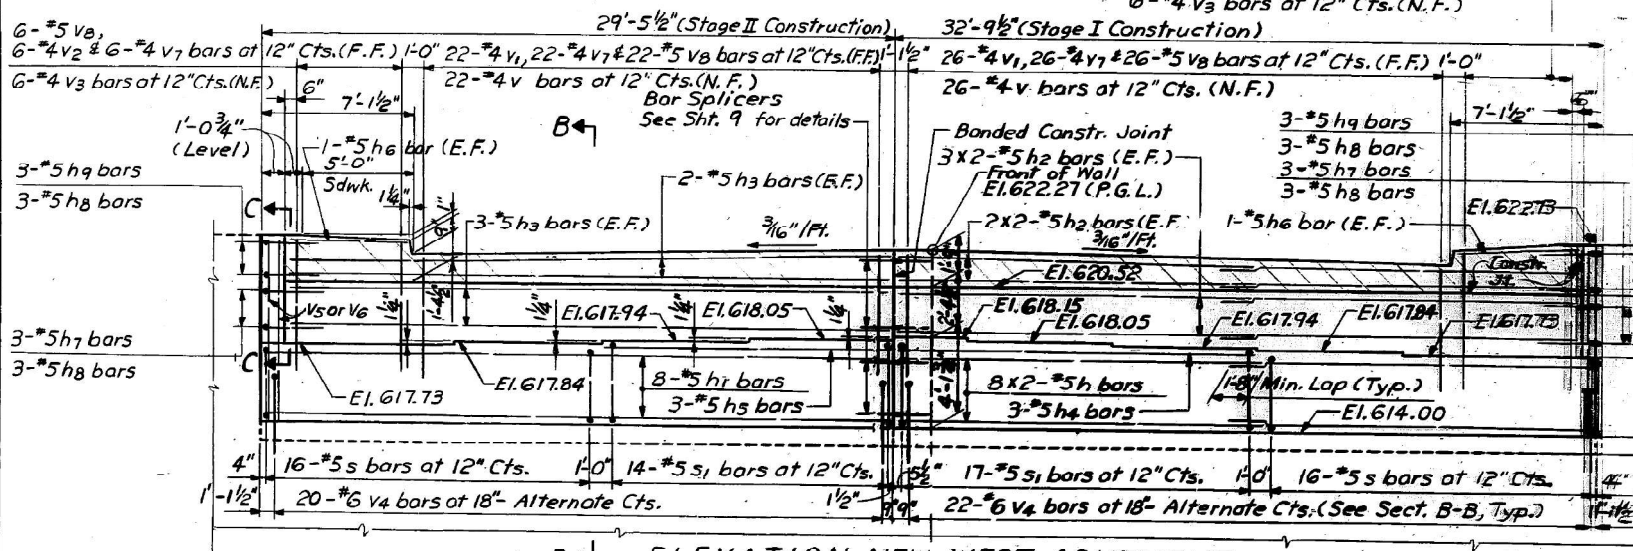 6-#4 v3 bars at 12" Cts. (N.F.)
6-#5 v8,
6-#4 v2 & 6-#4 v7 bars at 12" Cts. (F.F.)
6-#4 v3 bars at 12" Cts. (N.F.)
29'-5½" (Stage II Construction)
32'-9½" (Stage I Construction)
1'-0"
22-#4 v1, 22-#4 v7 & 22-#5 v8 bars at 12" Cts. (F.F.)
1'-1½"
26-#4 v1, 26-#4 v7 & 26-#5 v8 bars at 12" Cts. (F.F.)
1'-0"
22-#4 v bars at 12" Cts. (N.F.)
26-#4 v bars at 12" Cts. (N.F.)
6"
7'-1½"
Bar Splicers
See Sht. 9 for details
B
7'-1½"
6"
1'-0¾"
(Level)
1-#5 h6 bar (E.F.)
5'-0"
Sdwk.
1¼"
Bonded Constr. Joint
3x2-#5 h2 bars (E.F.)
Front of Wall
El. 622.27 (P.G.L.)
3-#5 h9 bars
3-#5 h8 bars
3-#5 h7 bars
3-#5 h8 bars
3-#5 h9 bars
3-#5 h8 bars
C
2-#5 h3 bars (E.F.)
3-#5 h3 bars (E.F.)
3/16"/Ft.
2x2-#5 h2 bars (E.F.
3/16"/Ft.
1-#5 h6 bar (E.F.)
El. 622.73
El. 620.52
Constr.
Jt.
v5 or v6
1¼"
1'-4½"
1¼"
El. 617.94
1¼"
El. 618.05
1¼"
El. 618.15
El. 618.05
El. 617.94
El. 617.84
El. 617.73
3-#5 h7 bars
3-#5 h8 bars
C
El. 617.73
El. 617.84
8-#5 h1 bars
3-#5 h5 bars
8x2-#5 h bars
3-#5 h4 bars
1'-8" Min. Lap (Typ.)
El. 614.00
4"
16-#5 s bars at 12" Cts.
1'-0"
14-#5 s1 bars at 12" Cts.
5½"
17-#5 s1 bars at 12" Cts.
1'-0"
16-#5 s bars at 12" Cts.
4"
1'-1½"
20-#6 v4 bars at 18"- Alternate Cts.
1½"
9"
9"
22-#6 v4 bars at 18"- Alternate Cts. (See Sect. B-B, Typ.)
1'-1½"